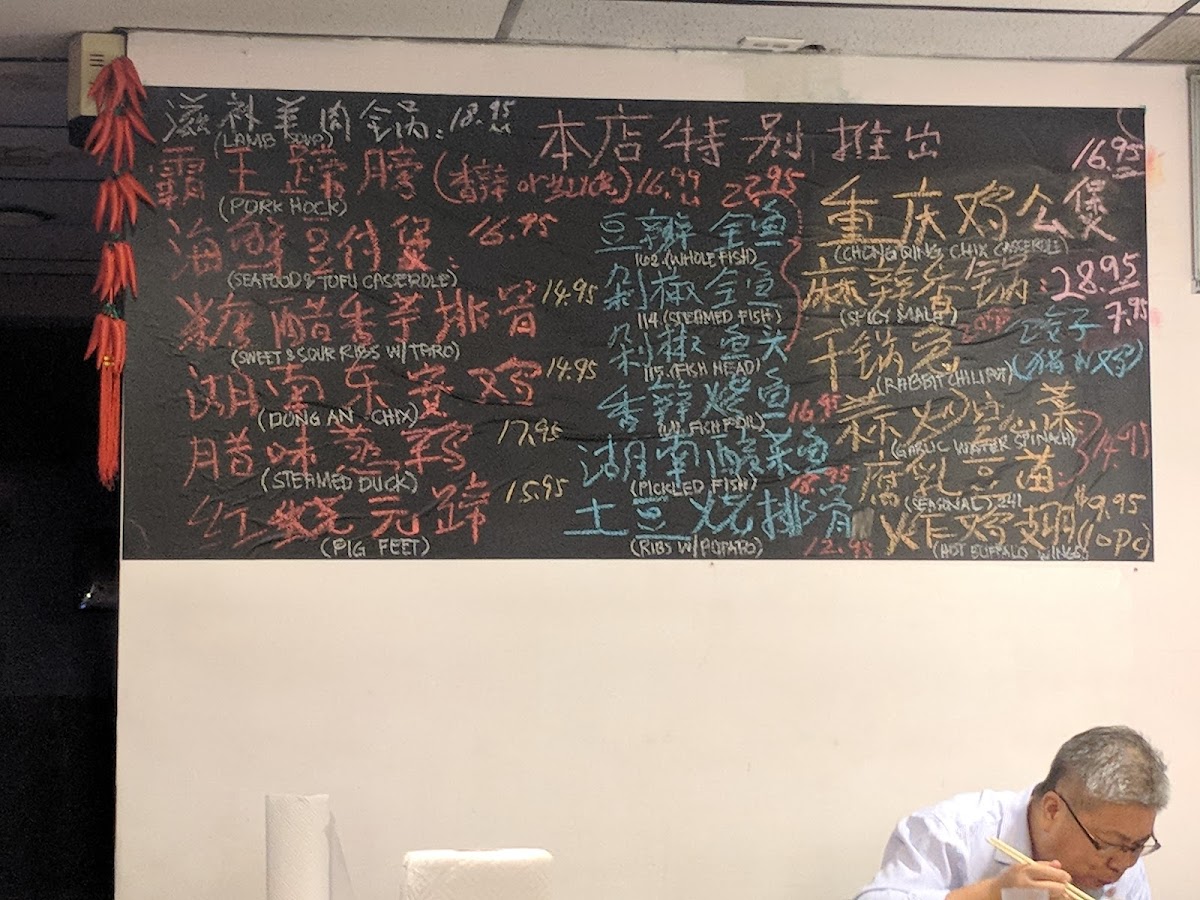 本店特别推出
滋补羊肉全锅: 18.95
(LAMB SOUP)
霸王蹄膀(香辣or红烧)16.99
(PORK HOCK)
海鲜豆付煲: 16.95
(SEAFOOD & TOFU CASSEROLE)
糖醋香芋排骨 14.95
(SWEET & SOUR RIBS W/TARO)
湖南东安鸡 14.95
(DONG AN CHIX)
腊味蒸鸭 17.95
(STEAMED DUCK)
红烧元蹄 15.95
(PIG FEET)
22.95
豆瓣全鱼
162.(WHOLE FISH)
剁椒全鱼
114.(STEAMED FISH)
剁椒鱼头
115.(FISH HEAD)
香辣烤鱼 16.95
湖南酸菜鱼
(PICKLED FISH)
土豆烧排骨
(RIBS W/POTATO) 12.95
16.95
重庆鸡公煲
(CHONGQING CHIX CASSEROLE)
麻辣香锅: 28.95
(SPICY MALA)
饺子 7.95
干锅兔
(RABBIT CHILI POT)
蒜炒
(GARLIC WATER SPINACH)
14.95
腐乳豆苗
(SEASONAL) 241
炸鸡翅 $9.95
(10Pc)
(HOT BUFFALO WINGS)